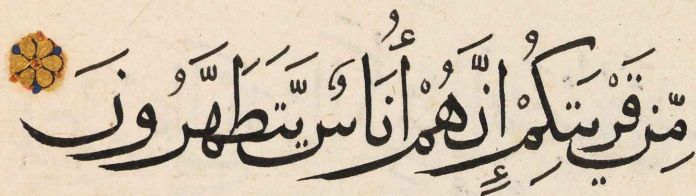 مِّن قَرْيَتِكُمْ إِنَّهُمْ أُنَاسٌ يَتَطَهَّرُونَ